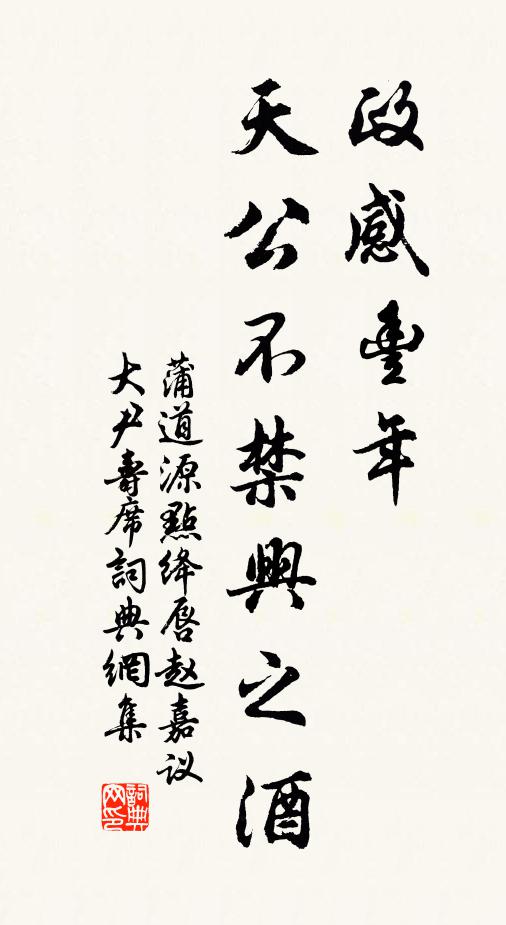 政感豐年
天公不禁興之酒
蒲道源點绛唇赵嘉议
大尹壽席詞典網集
詞典网印